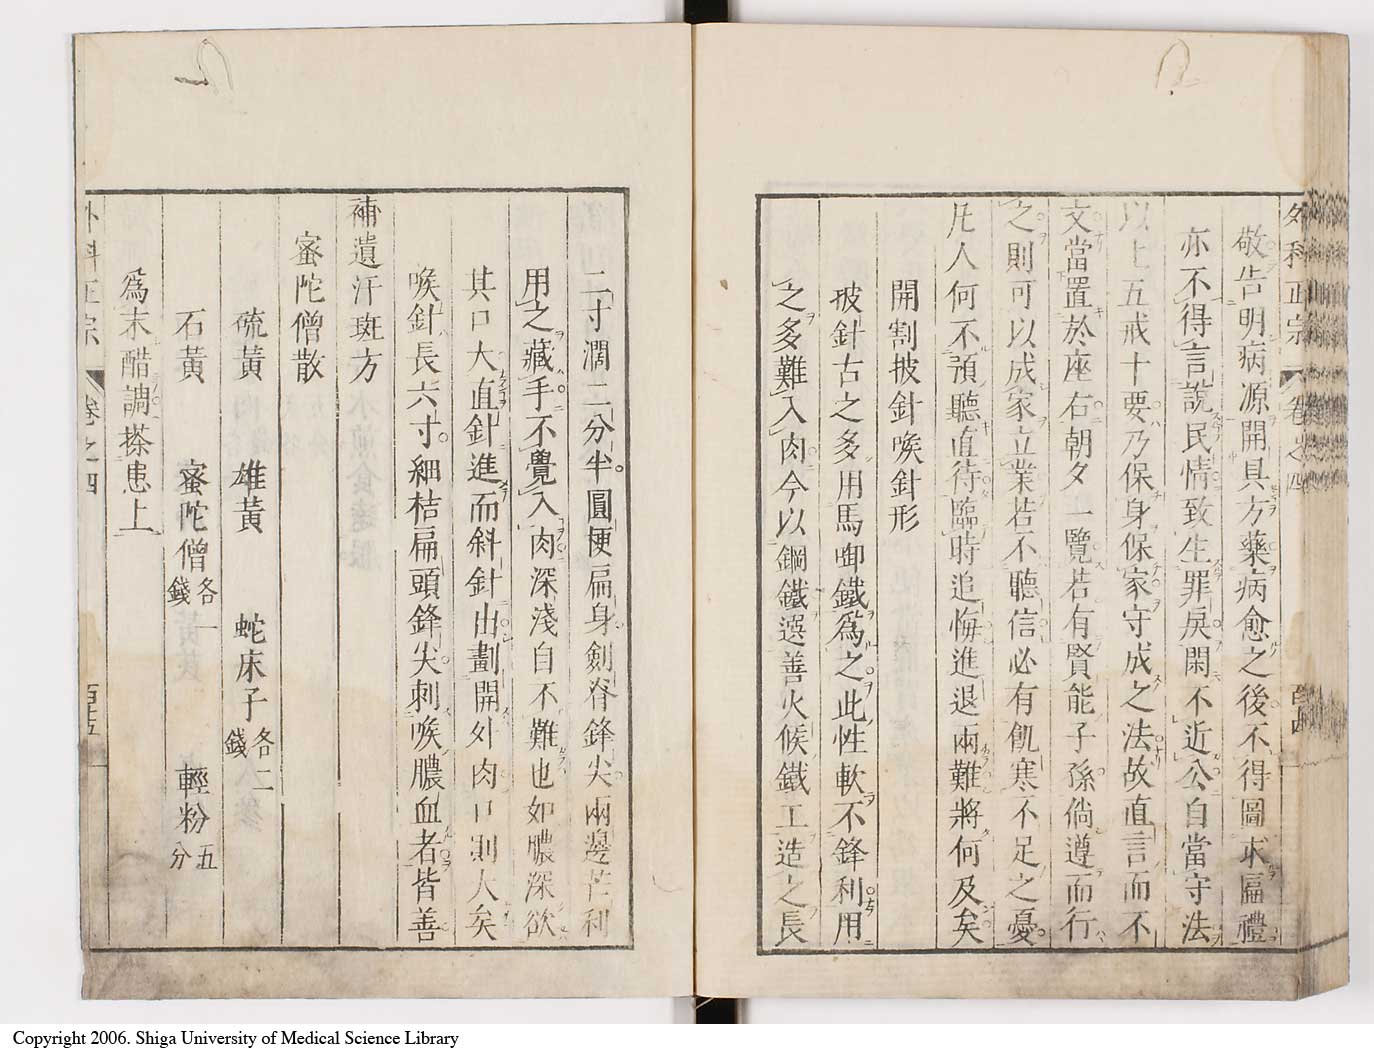 外科正宗 卷之四
敬告明病源開具方藥病愈之後不得圖求匾禮
亦不得言說民情致生罪戾閑不近公自當守法
以上五戒十要乃保身保家守成之法故直言而不
文當置於座右朝夕一覽若有賢能子孫倘遵而行
之則可以成家立業若不聽信必有飢寒不足之憂
凡人何不預聽直待臨時追悔進退兩難將何及矣
開割披針喉針形
披針古之多用馬啣鐵爲之此性軟不鋒利用
之多難入肉今以鋼鐵選善火候鐵工造之長
二寸濶二分半圓梗扁身劍脊鋒尖兩邊芒利
用之藏手不覺入肉深淺自不難也如膿深欲
其口大直針進而斜針出劃開外肉口則大矣
喉針長六寸細桔扁頭鋒尖刺喉膿血者皆善
補遺汗斑方
蜜陀僧散
硫黃 雄黃 蛇床子各二錢
石黃 蜜陀僧各一錢 輕粉五分
爲末醋調搽患上
外科正宗 卷之四
Copyright 2006. Shiga University of Medical Science Library